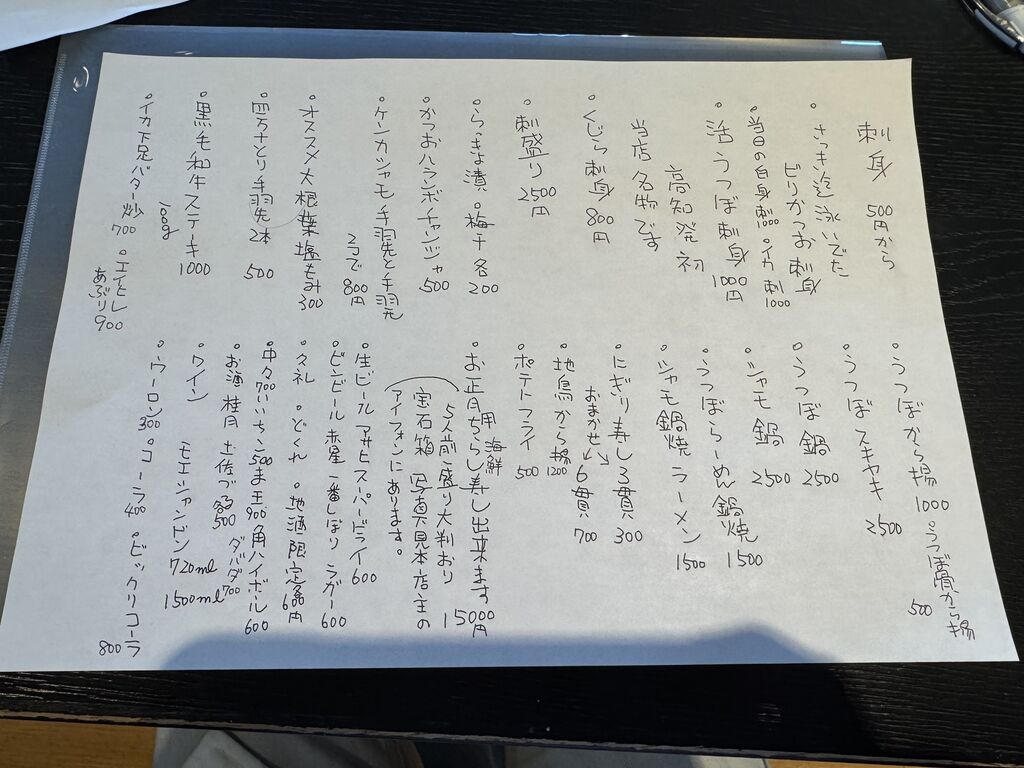 刺身 500円から
・さっき迄泳いでた
ビリかつお刺身
・当日の白身刺1000 ・イカ刺1000
・活うつぼ刺身 1000円
高知発初
当店名物です
・くじら刺身 800円
・刺盛り 2500円
・らっきょ漬 ・梅干 各200
・かつおハランボチャンジャ 500
・ケンカシャモ 手羽先と手羽
2つで800円
・オススメ大根葉塩もみ 300
・四万十とり手羽先2本 500
・黒毛和牛ステーキ
100g 1000
・イカ下足バター炒 700 ・エイヒレあぶり 900
・うつぼから揚 1000 ・うつぼ骨から揚 500
・うつぼスキヤキ 2500
・うつぼ鍋 2500
・シャモ鍋 2500
・うつぼらーめん鍋焼 1500
・シャモ鍋焼ラーメン 1500
・にぎり寿し3貫 300
おまかせ 6貫 700
・地鳥から揚 1200
・ポテトフライ 500
・お正月用海鮮ちらし寿し出来ます
5人前一盛り大判おり 15000円
宝石箱 写真見本店主の
アイフォンにあります。
・生ビール アサヒスーパードライ 600
・ビンビール 赤星 一番しぼり ラガー 600
・久礼 ・どくれ ・地酒限定 600円
・中々700 いいちこ500 ま王900 角ハイボール 600
・お酒 桂月 土佐づる500 ダバダ700
・ワイン モエシャンドン 720ml 1500ml
・ウーロン300 ・コーラ400 ・ビックリコーラ 800